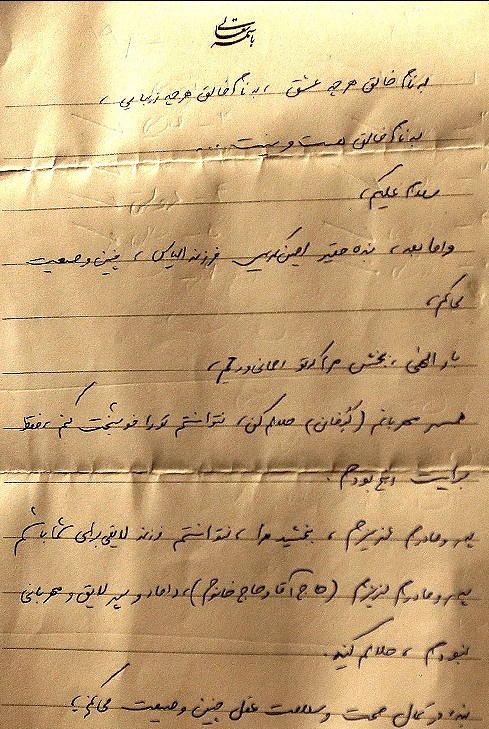 باسمه تعالی
به نام خالق هر چه عشق ، به نام خالق هر چه زیبایی ،
به نام خالق هست و نیست ...
سلام علیکم ،
و اما بعد ، بنده حقیر امین کریمی فرزند الیاس ، چنین وصیت
می‌کنم ،
بار الهی ، ببخش مرا که تو
همسر مهربانم ( ) حلالم کن ، نتوانستم تو را خوشبخت کنم ، فقط
برایت رنج بودم .
پدر و مادرم عزیزم ، ببخشید مرا ، نتوانستم فرزند لایقی برای شما باشم
پدر و مادرم عزیزم ( حاج آقا و حاج خانوم ) ، داماد و پسر لایق و مهربانی
نبودم ، حلالم کنید .
بنده در کمال صحت و سلامت عقل چنین وصیت می‌کنم :